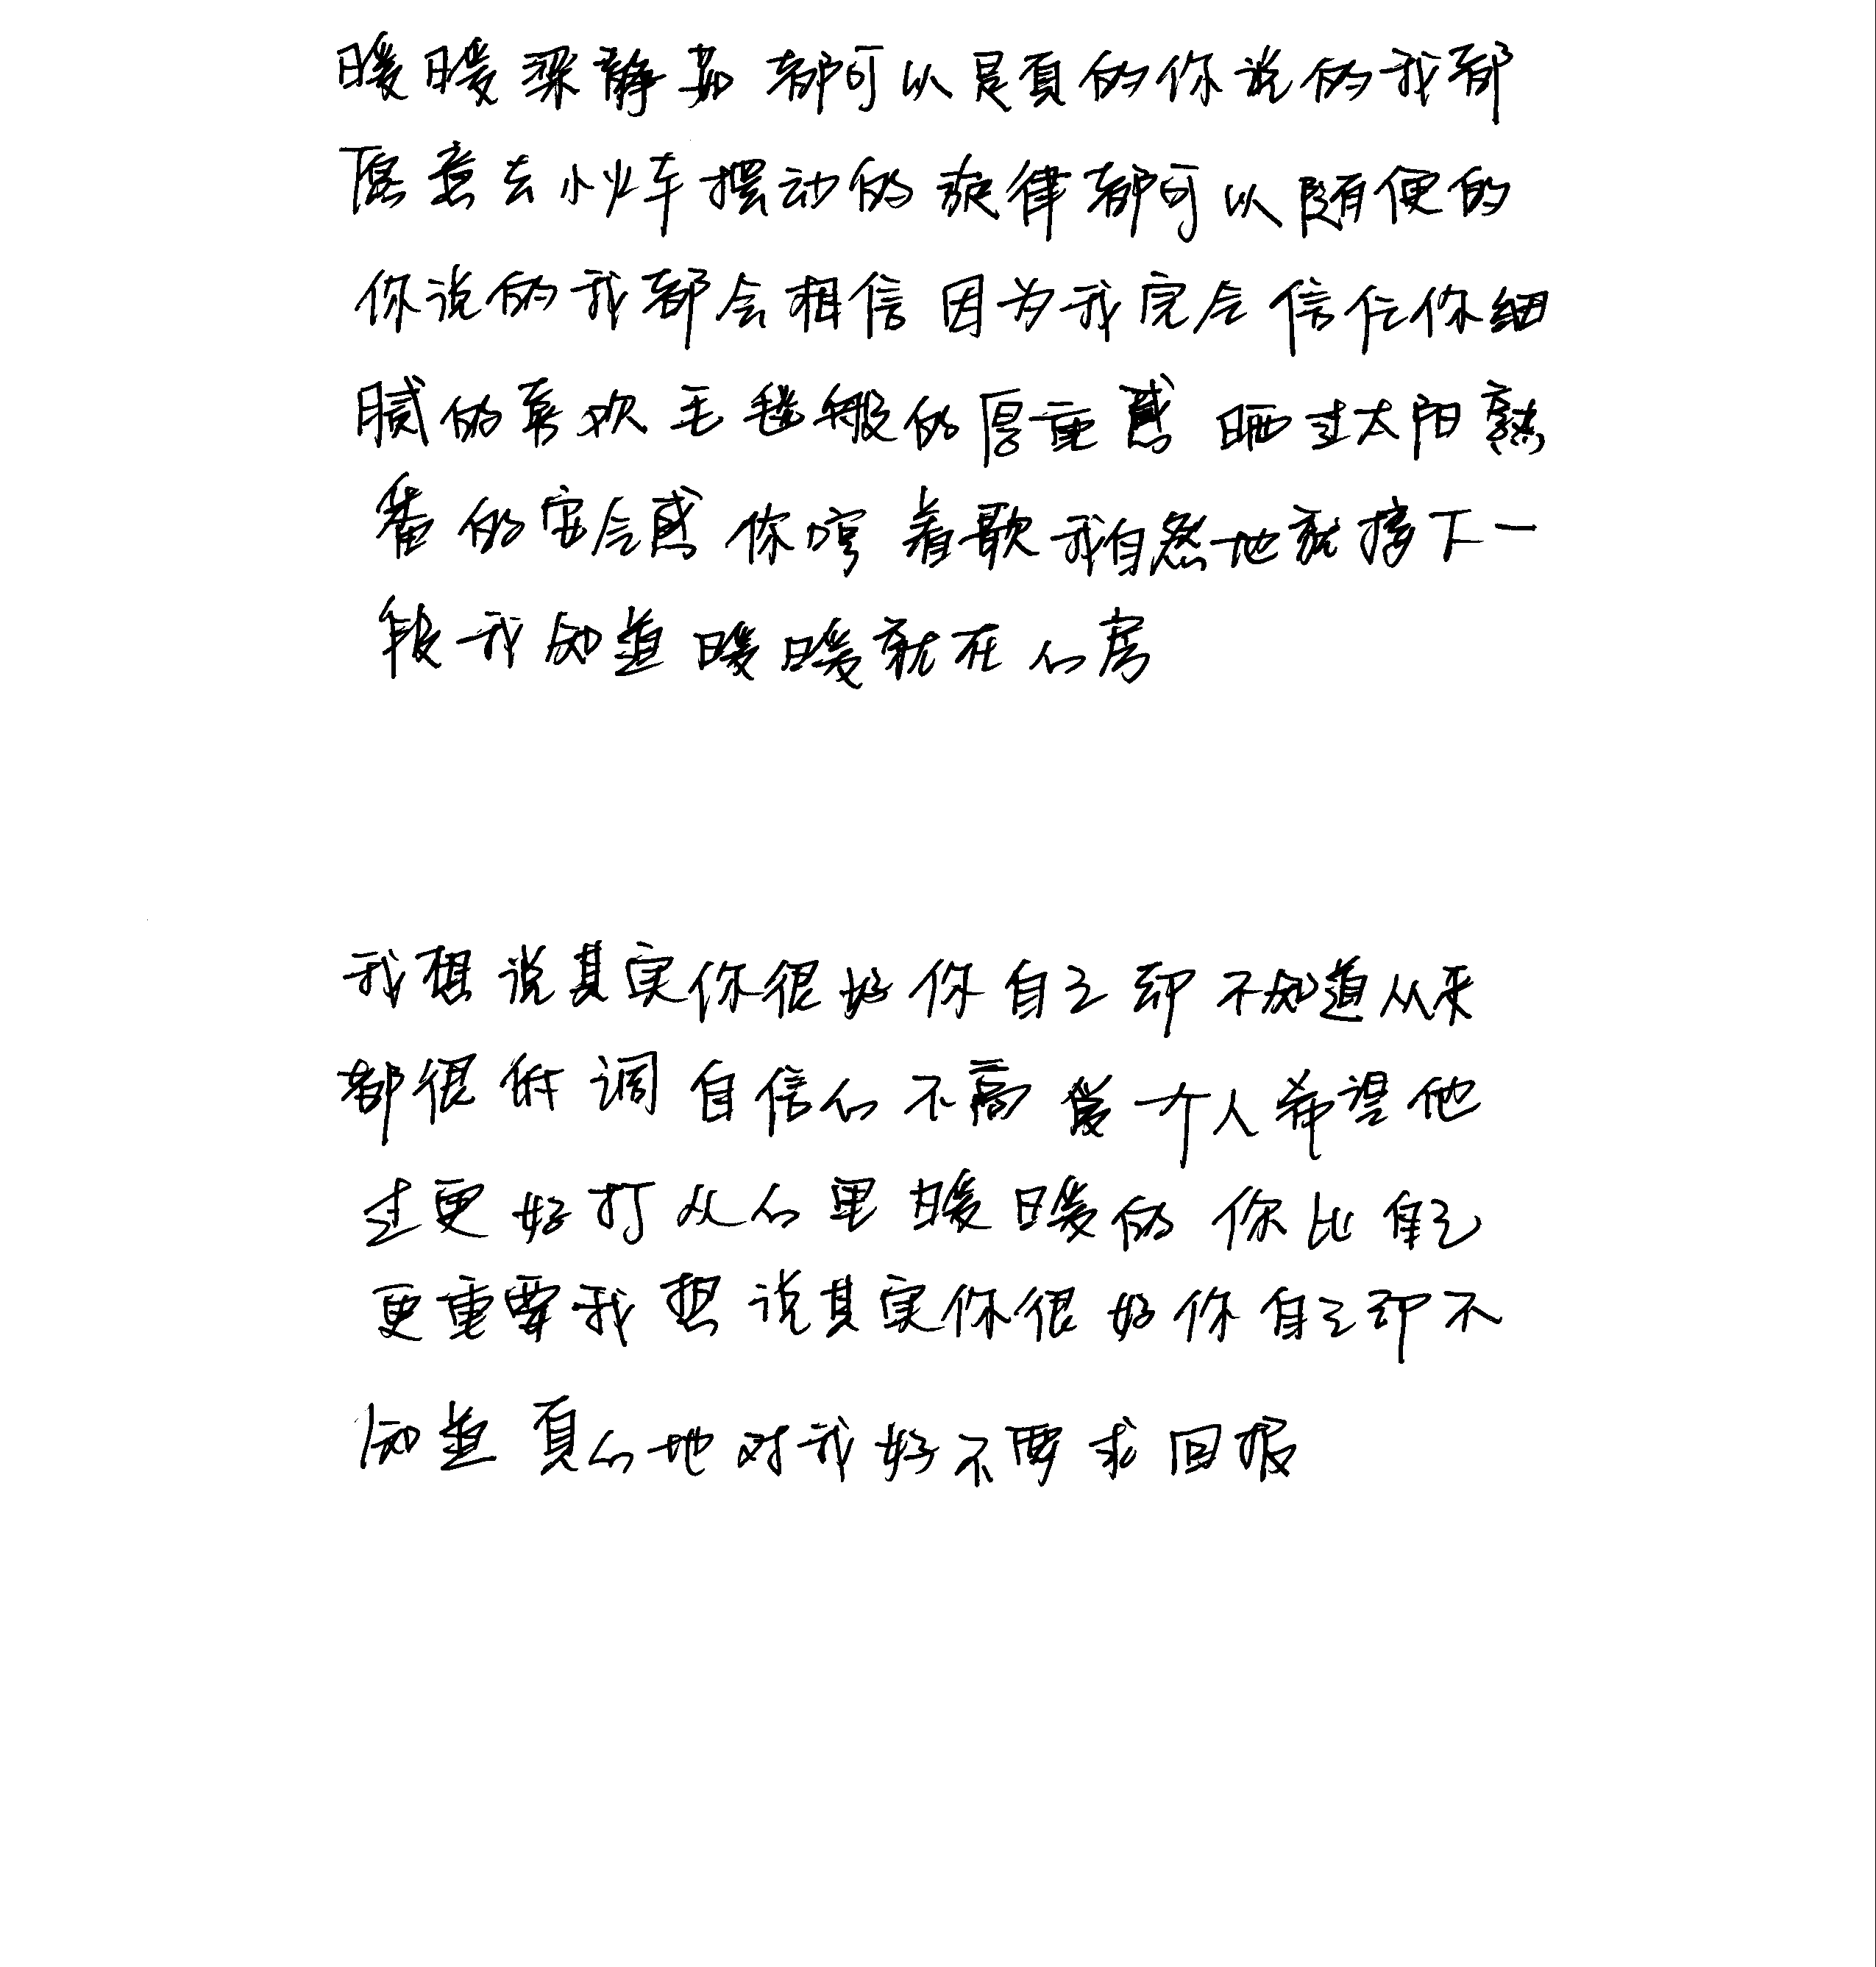 暖暖梁静茹都可以是真的你说的我都
愿意去小火车摆动的旋律都可以随便的
你说的我都会相信因为我完全信任你细
腻的喜欢毛毯般的厚重感晒过太阳熟
番的安全感你哼着歌我自然地就接下一
段我知道暖暖就在心房
我想说其实你很好你自己却不知道从来
都很低调自信心不高爱一个人希望他
过更好打从心里暖暖的你比自己
更重要我想说其实你很好你自己却不
知道真心地对我好不要求回报